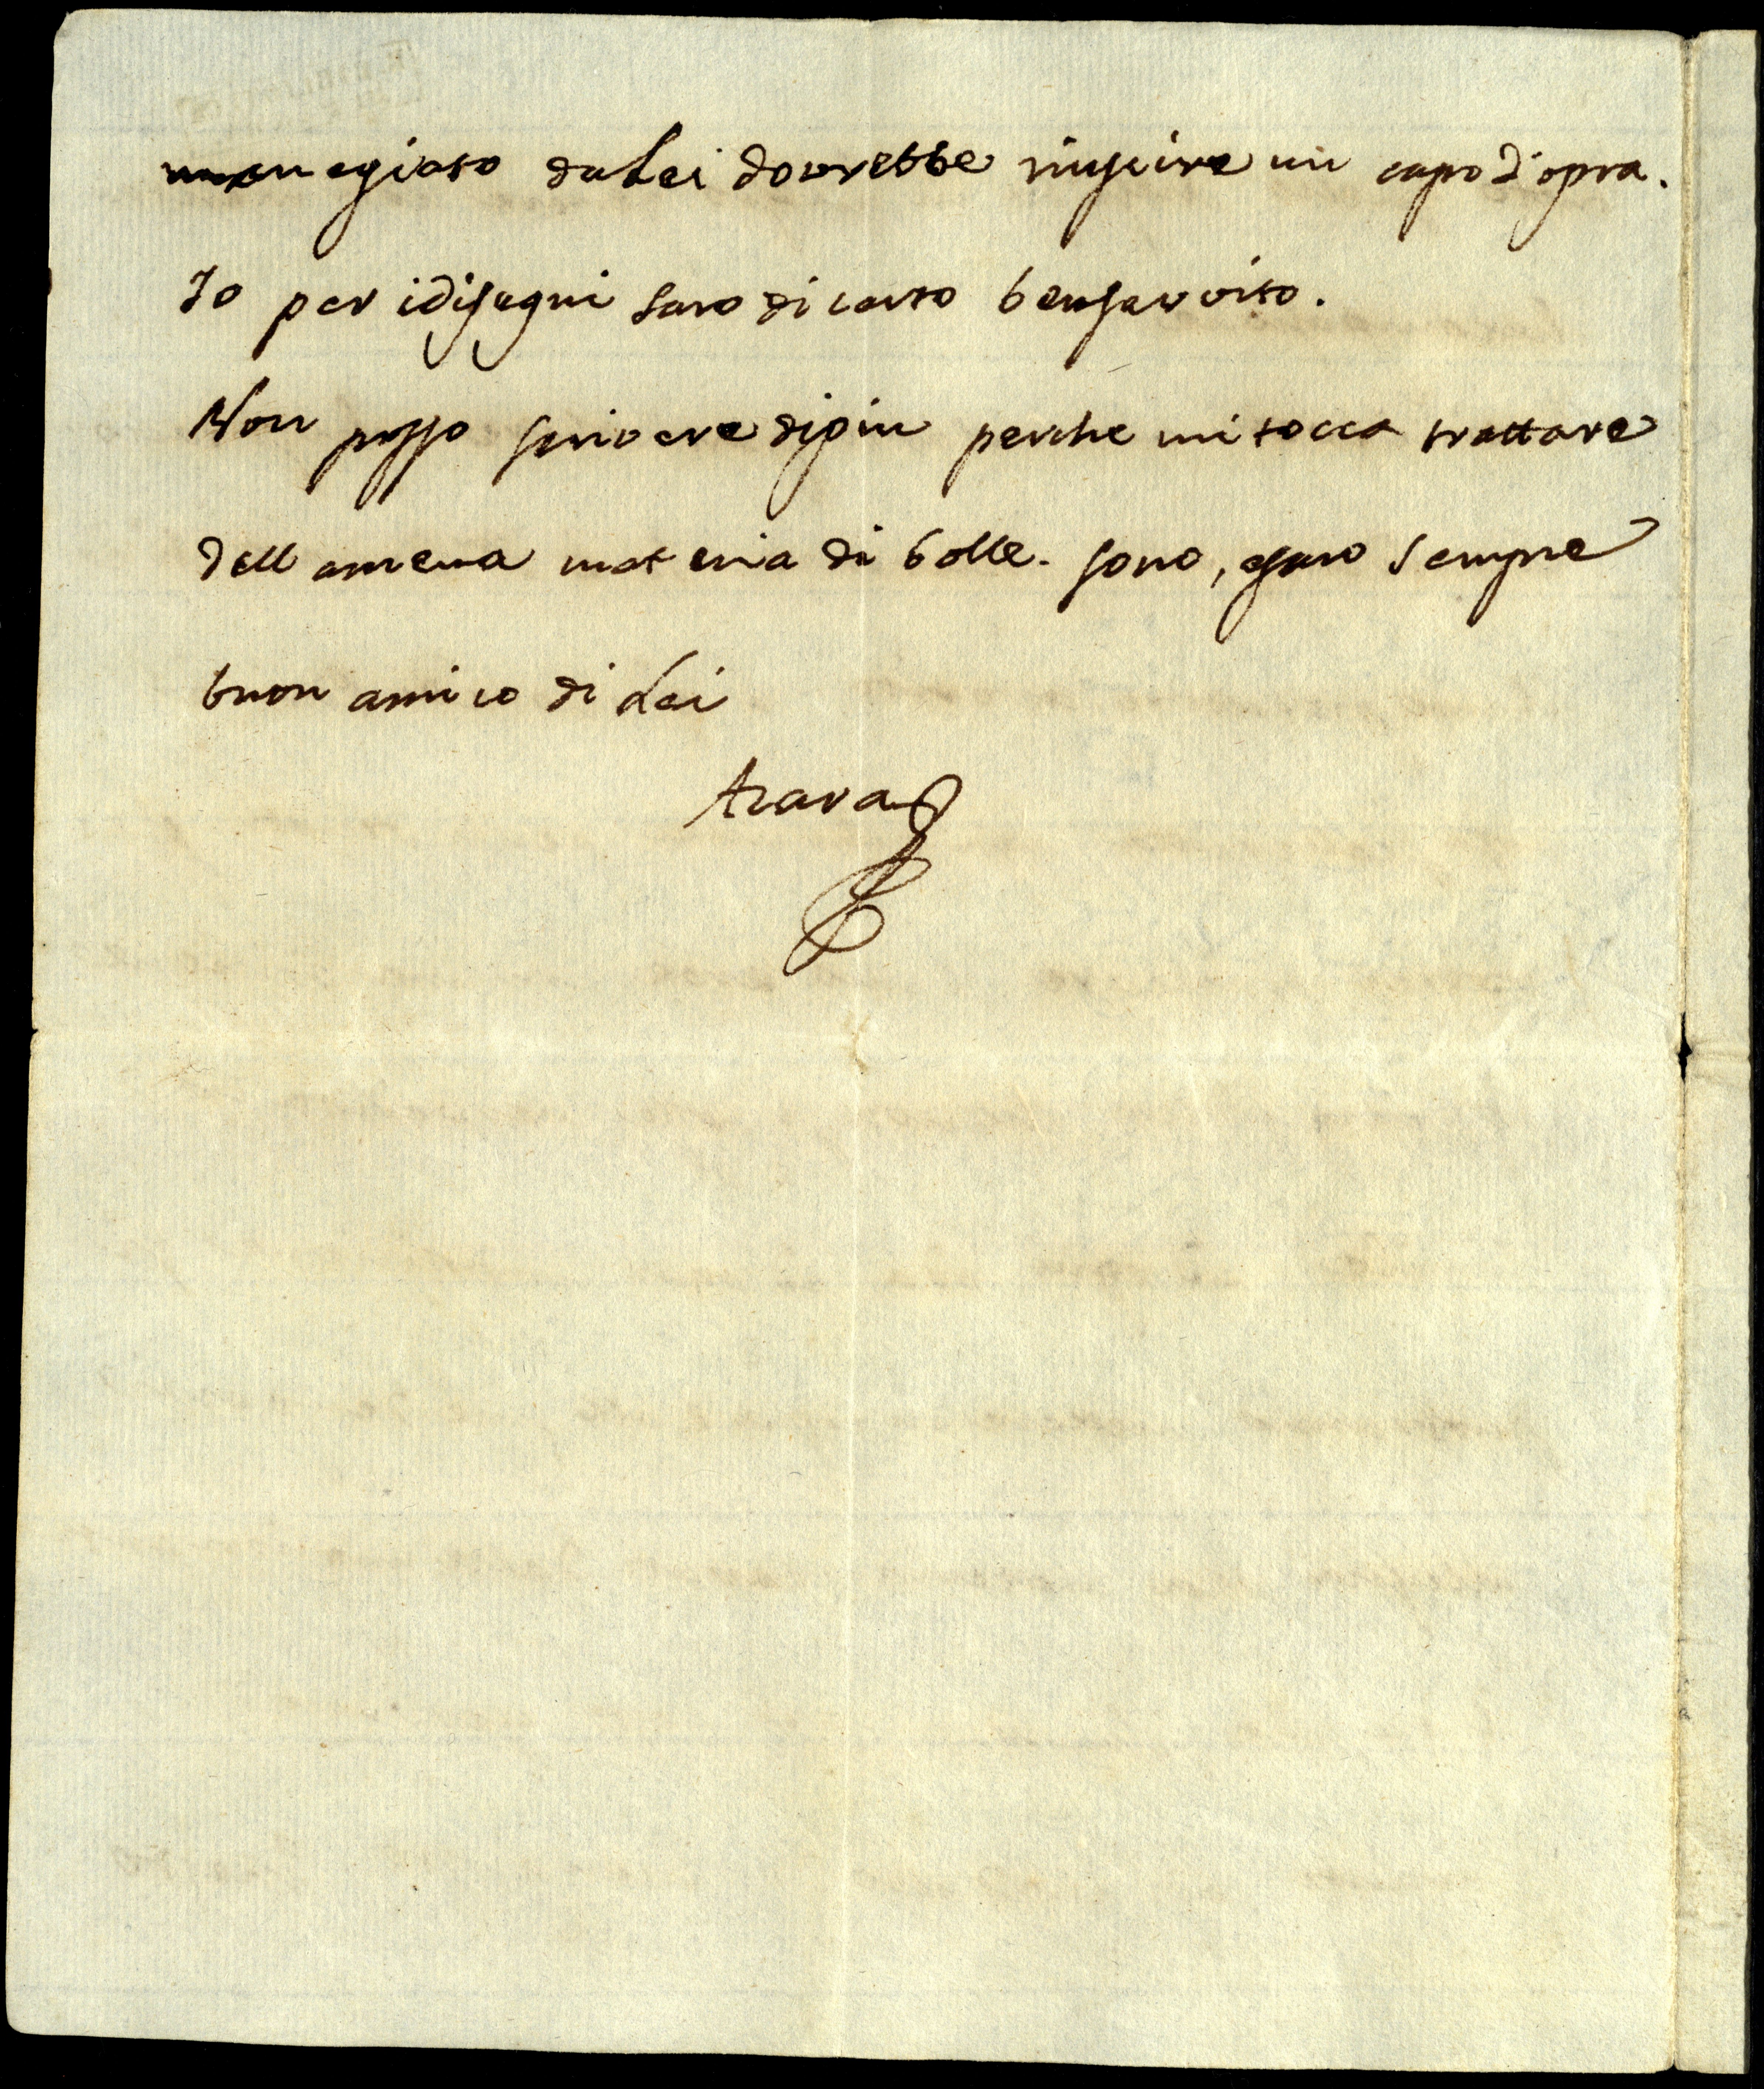 maneggiato da Lei dovrebbe riuscire un capo d'opra.
Io per i disegni saro di certo ben servito.
Non posso scrivere di piu perche mi tocca trattare
dell amena materia di bolle. sono, e saro sempre
buon amico di Lei
Azara